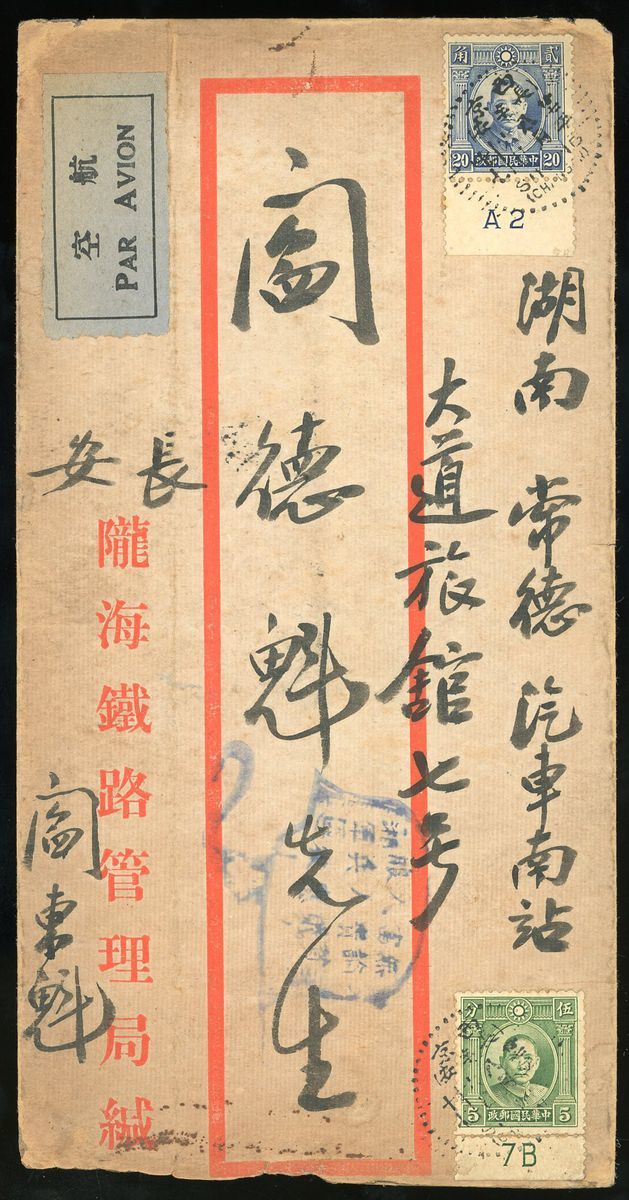 湖南 常德 汽車南站
大道旅館七号
閻德魁先生
長安
隴海鐵路管理局緘
閻東魁
航空
PAR AVION
角 貳
20 中華民國郵政 20
A2
分 伍
5 中華民國郵政 5
7B